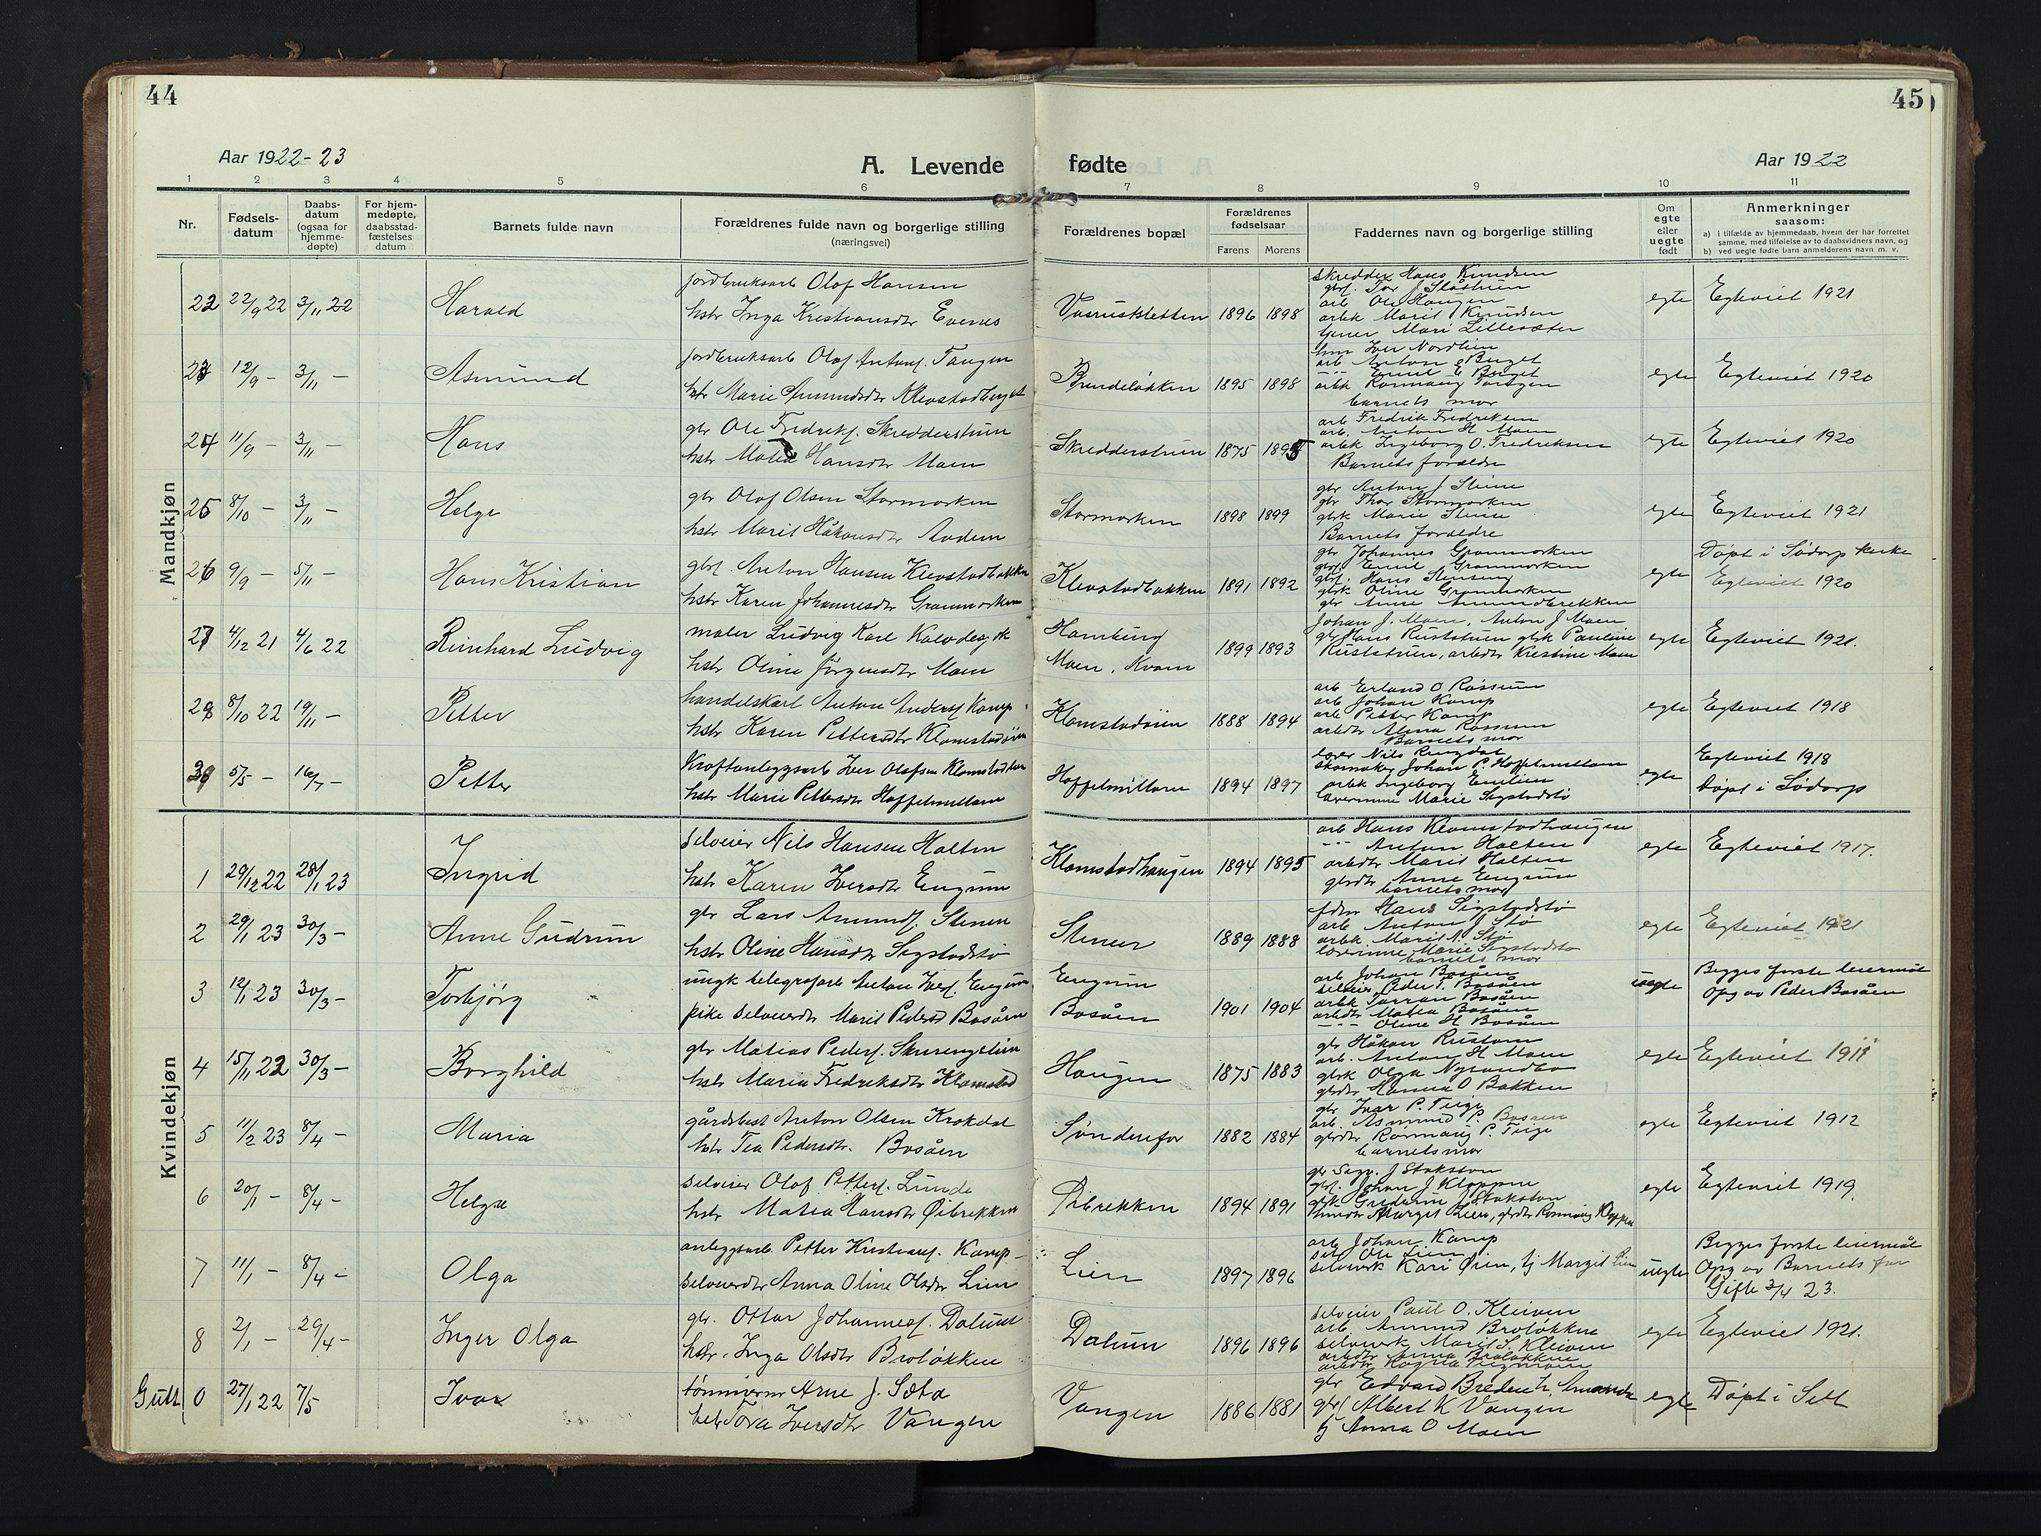 44
45
Aar 1922-23
A. Levende fødte
Aar 1922
1 2 3 4 5 6 7 8 9 10 11
Nr.
Fødsels-datum
Daabs-datum (ogsaa for hjemme-døpte)
For hjem-medøpte, daabsstad-fæstelses datum
Barnets fulde navn
Forældrenes fulde navn og borgerlige stilling (næringsvei)
Forældrenes bopæl
Forældrenes fødselsaar
Farens Morens
Faddernes navn og borgerlige stilling
Om egte eller uegte født
Anmerkninger saasom:
a) i tilfælde av hjemmedaab, hvem der har forrettet samme, med tilføielse av to daabsvidners navn, og
b) ved uegte fødte barn anmelderens navn m. v.
Mandkjøn
22 22/9 22 3/11 22 Harald
jordbruksarb Olof Hansen
hstr Inga Kristiansdtr Evenes
1896 1898
skredder Hans Knudsen
arb Ole Haugen
arbk Marit Knudsen
egte Egteviet 1921
23 12/9 - 3/11 - Asmund
jordbruksarb Olof Antonf. Tangen
hstr Marie Amundsdtr Klevstadberget
Brendeløkken 1895 1898
hm Iver Nordlien
arb Anton Buget
--- Emil E Buget
barnets mor
egte Egteviet 1920
24 11/9 - 3/11 - Hans
gbr Ole Fredrikf. Skredderstuen
hstr Matea Hansdtr Moen
Skredderstuen 1875 1895
arb Fredrik Fredriksen
arb. Anton H Moen
arbk Ingeborg O. Fredriksen
Barnets foreldre
egte Egteviet 1920
25 8/10 - 3/11 - Helge
gbr Olof Olsen Stormorken
hstr Marit Håkonsdtr Andem
Stormorken 1898 1899
gbr Anton J Steine
gbr Thor Stormorken
gbrk Marie Steine
Barnets foreldre
egte Egteviet 1921
26 9/9 - 5/11 - Hans Kristian
gbrf. Anton Hansen Klevstadbakken
hstr Karen Johannesdtr Granmorken
Klevstadbakken 1891 1892
gbr Johannes Granmorken
gbrf Emil Granmorken
gbrk Oline Granmorken
egte Døpt i Sødorp kirke
Egteviet 1920
27 4/12 21 4/6 22 Reinhard Ludvig
maler Ludvig Karl
hstr Oline Jørgensdtr Moen
Hamburg
Moen, Kvam 1899 1893
Johan J. Moen, Anton J Moen
gbr Hans Ruststuen gbrk Pauline
Ruststuen, arbdtr Kristine Moen
egte Egteviet 1921.
28 8/10 22 19/11 - Petter
handelskarl Anton Andersf Kamp
hstr Karen Pettersdtr Klomstadøien
Klomstadøien 1888 1894
arb Erland O Rossum
arb Johan Kamp
arb Petter Kamp
arbdtr Alma Rossum
Barnets mor
egte Egteviet 1918
5/5 - 16/7 - Petter
Kraftanleggsarb Iver Olafsen
hstr Marie Pettersdtr Hoffelmillom
Hoffelmillom 1894 1897
lærer Nils Ringdal
skomaker Johan P. Hoffelmillom
arbk Ingeborg Enlien
Marie Sigstadstø
egte Egteviet 1918
Døpt i Sødorp
Kvindekjøn
1 29/12 22 28/1 23 Ingrid
selveier Nils Hansen Holten
hstr Karen Iversdtr Engum
Klomstadhaugen 1894 1895
arb Hans Klomstadhaugen
--- Anton Holten
arbdtr Marit Holten
gbrdtr Anne Engum
barnets mor
egte Egteviet 1917.
2 29/1 23 30/3 - Anne Gudrun
gbr Lars Amundf. Steinen
hstr Oline Hansdtr Sigstadstø
1889 1888
Hans Sigstadstø
arb Anton J Stø
arbk Marit N. Stø
lærerinne Marie Sigstadstø
barnets mor
egte Egteviet 1921
3 12/1 23 30/3 - Torbjørg
ungk telegrafarb Anton Iverf. Engum
pike selveierdtr Marit Pedersd Bosåen
Engum
Bosåen 1901 1904
arb Johan Bosåen
selveier Peder T. Bosåen
arbdtr Matea Bosåen
--- Oline H Bosåen
uegte Begges første leiermål
Opg av Peder Bosåen
4 15/11 22 30/3 - Borghild
gbr Matias Pederf. Skurengelien
hstr Maria Fredriksdtr Klomstad
Haugen 1875 1883
gbr Håkon Rusten
arb. Anton H Moen
gbrk Olga Nysandbø
gbrdtr Hanna O Bakken
egte Egteviet 1911
5 11/2 23 8/4 - Maria
gårdsbest Anton Olsen Krokdal
hstr Tea Pedersdtr. Bosåen
Sønderfor 1882 1884
gbr Ivar P. Teige
arb. Asmund P. Bosåen
gbrdtr Ronnaug P. Teige
barnets mor
egte Egteviet 1912
6 20/1 - 8/4 - Helga
selveier Olof Petterf. Lunde
hstr Matea Hansdtr Øibrekken
Øibrekken 1894 1891
gbr Sigv. J Stokstad
gbrf. Johan J Kleppen
egte Egteviet 1919.
7 11/1 - 8/4 - Olga
anleggsarb Petter Kristianf. Kamp -
selveierdtr Anna Oline Olsdtr Lien
Lien 1897 1896
arb Johan Kamp
selv Ole Lien
selveierk Kari Øien, tj Margit Lien
uegte Begges første leiermål
Opg av Barnets far
Gifte 3/4 23.
8 2/1 - 29/4 - Inger Olga
gbr. Ottar Johannesf. Dalum
hstr. Inga Olsdtr Broløkken
Dalum 1896 1896
selveier Paul O. Kleiven
arb. Amund Broløkken
selveierk Marit S. Kleiven
arbdtr Anna Broløkken
egte Egteviet 1921.
Gutt 0 27/1 22 7/5 Ivar
tømmerm Arne J. Sæta
hstr Tora Iversdtr Vangen
Vangen 1886 1881
gbr Edvard Bredevei
gbrf Albert K Vangen
tj Anna O Moen
egte Døpt i Sell